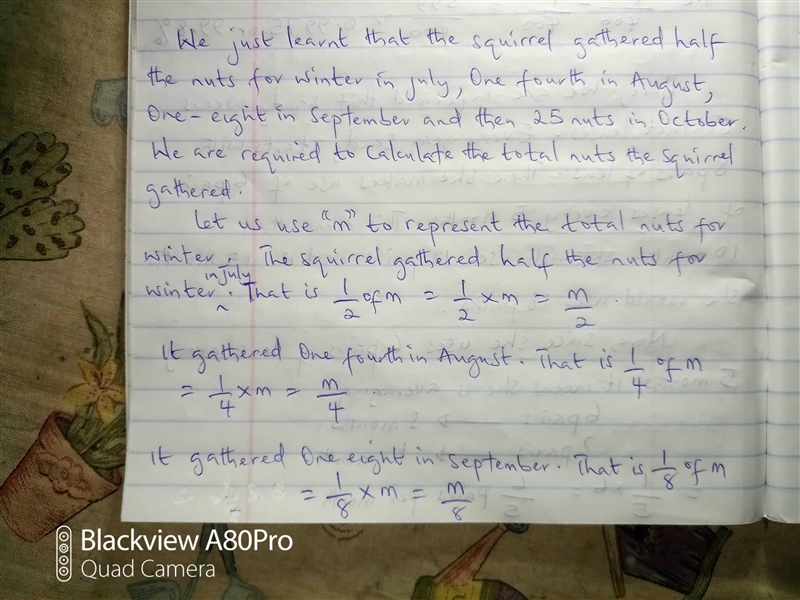 We just learnt that the squirrel gathered half
the nuts for winter in july, One fourth in August,
One-eight in September and then 25 nuts in October.
We are required to Calculate the total nuts the squirrel
gathered.
Let us use "m" to represent the total nuts for
winter. The squirrel gathered half the nuts for
winter in july. That is 1/2 of m = 1/2 × m = m/2.
It gathered One fourth in August. That is 1/4 of m
= 1/4 × m = m/4.
It gathered One eight in September. That is 1/8 of m
= 1/8 × m = m/8
Blackview A80Pro
Quad Camera